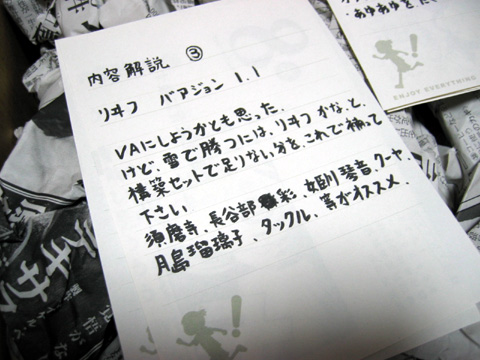 内容解説 ③
リヰフ バアジョン 1.1
VAにしようかとも思った.
けど、雪で勝つには、リヰフかなっと、
構築セットで足りない分を、これで補って
下さい
須磨寺、長谷部 彩、姫川琴音、クーヤ、
月島瑠璃子、タックル、等がオススメ.
・あゆあゆを
ENJOY EVERYTHING